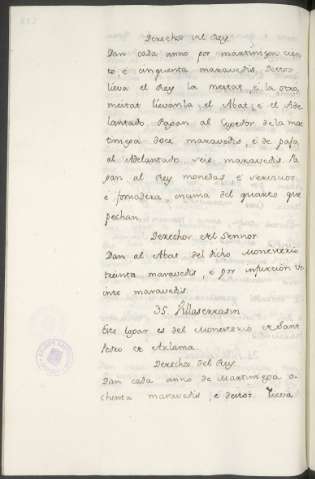 Derechos del Rey
Dan cada anno por martiniega cien
to, e cinquenta maravedis, destos
lieva el Rey la meitat, e la otra
meitat lievanla, el Abat, e el Ade
lantado. Pagan al Cogedor de la mar
tiniega doce maravedis, e de paja
al Adelantado seis maravedis. Pa
gan al Rey monedas e servicios
e fonsadera, encima del quarto que
pechan.
Derechos del Sennor
Dan al Abat del dicho Monesterio
treinta maravedis, e por infurcion ve
inte maravedis.
35. Villaserrasin
Este logar es del Monesterio de Sant
Pedro de Arlanza
Derechos del Rey
Dan cada anno de Martiniega o
chenta maravedis, e destos lieva